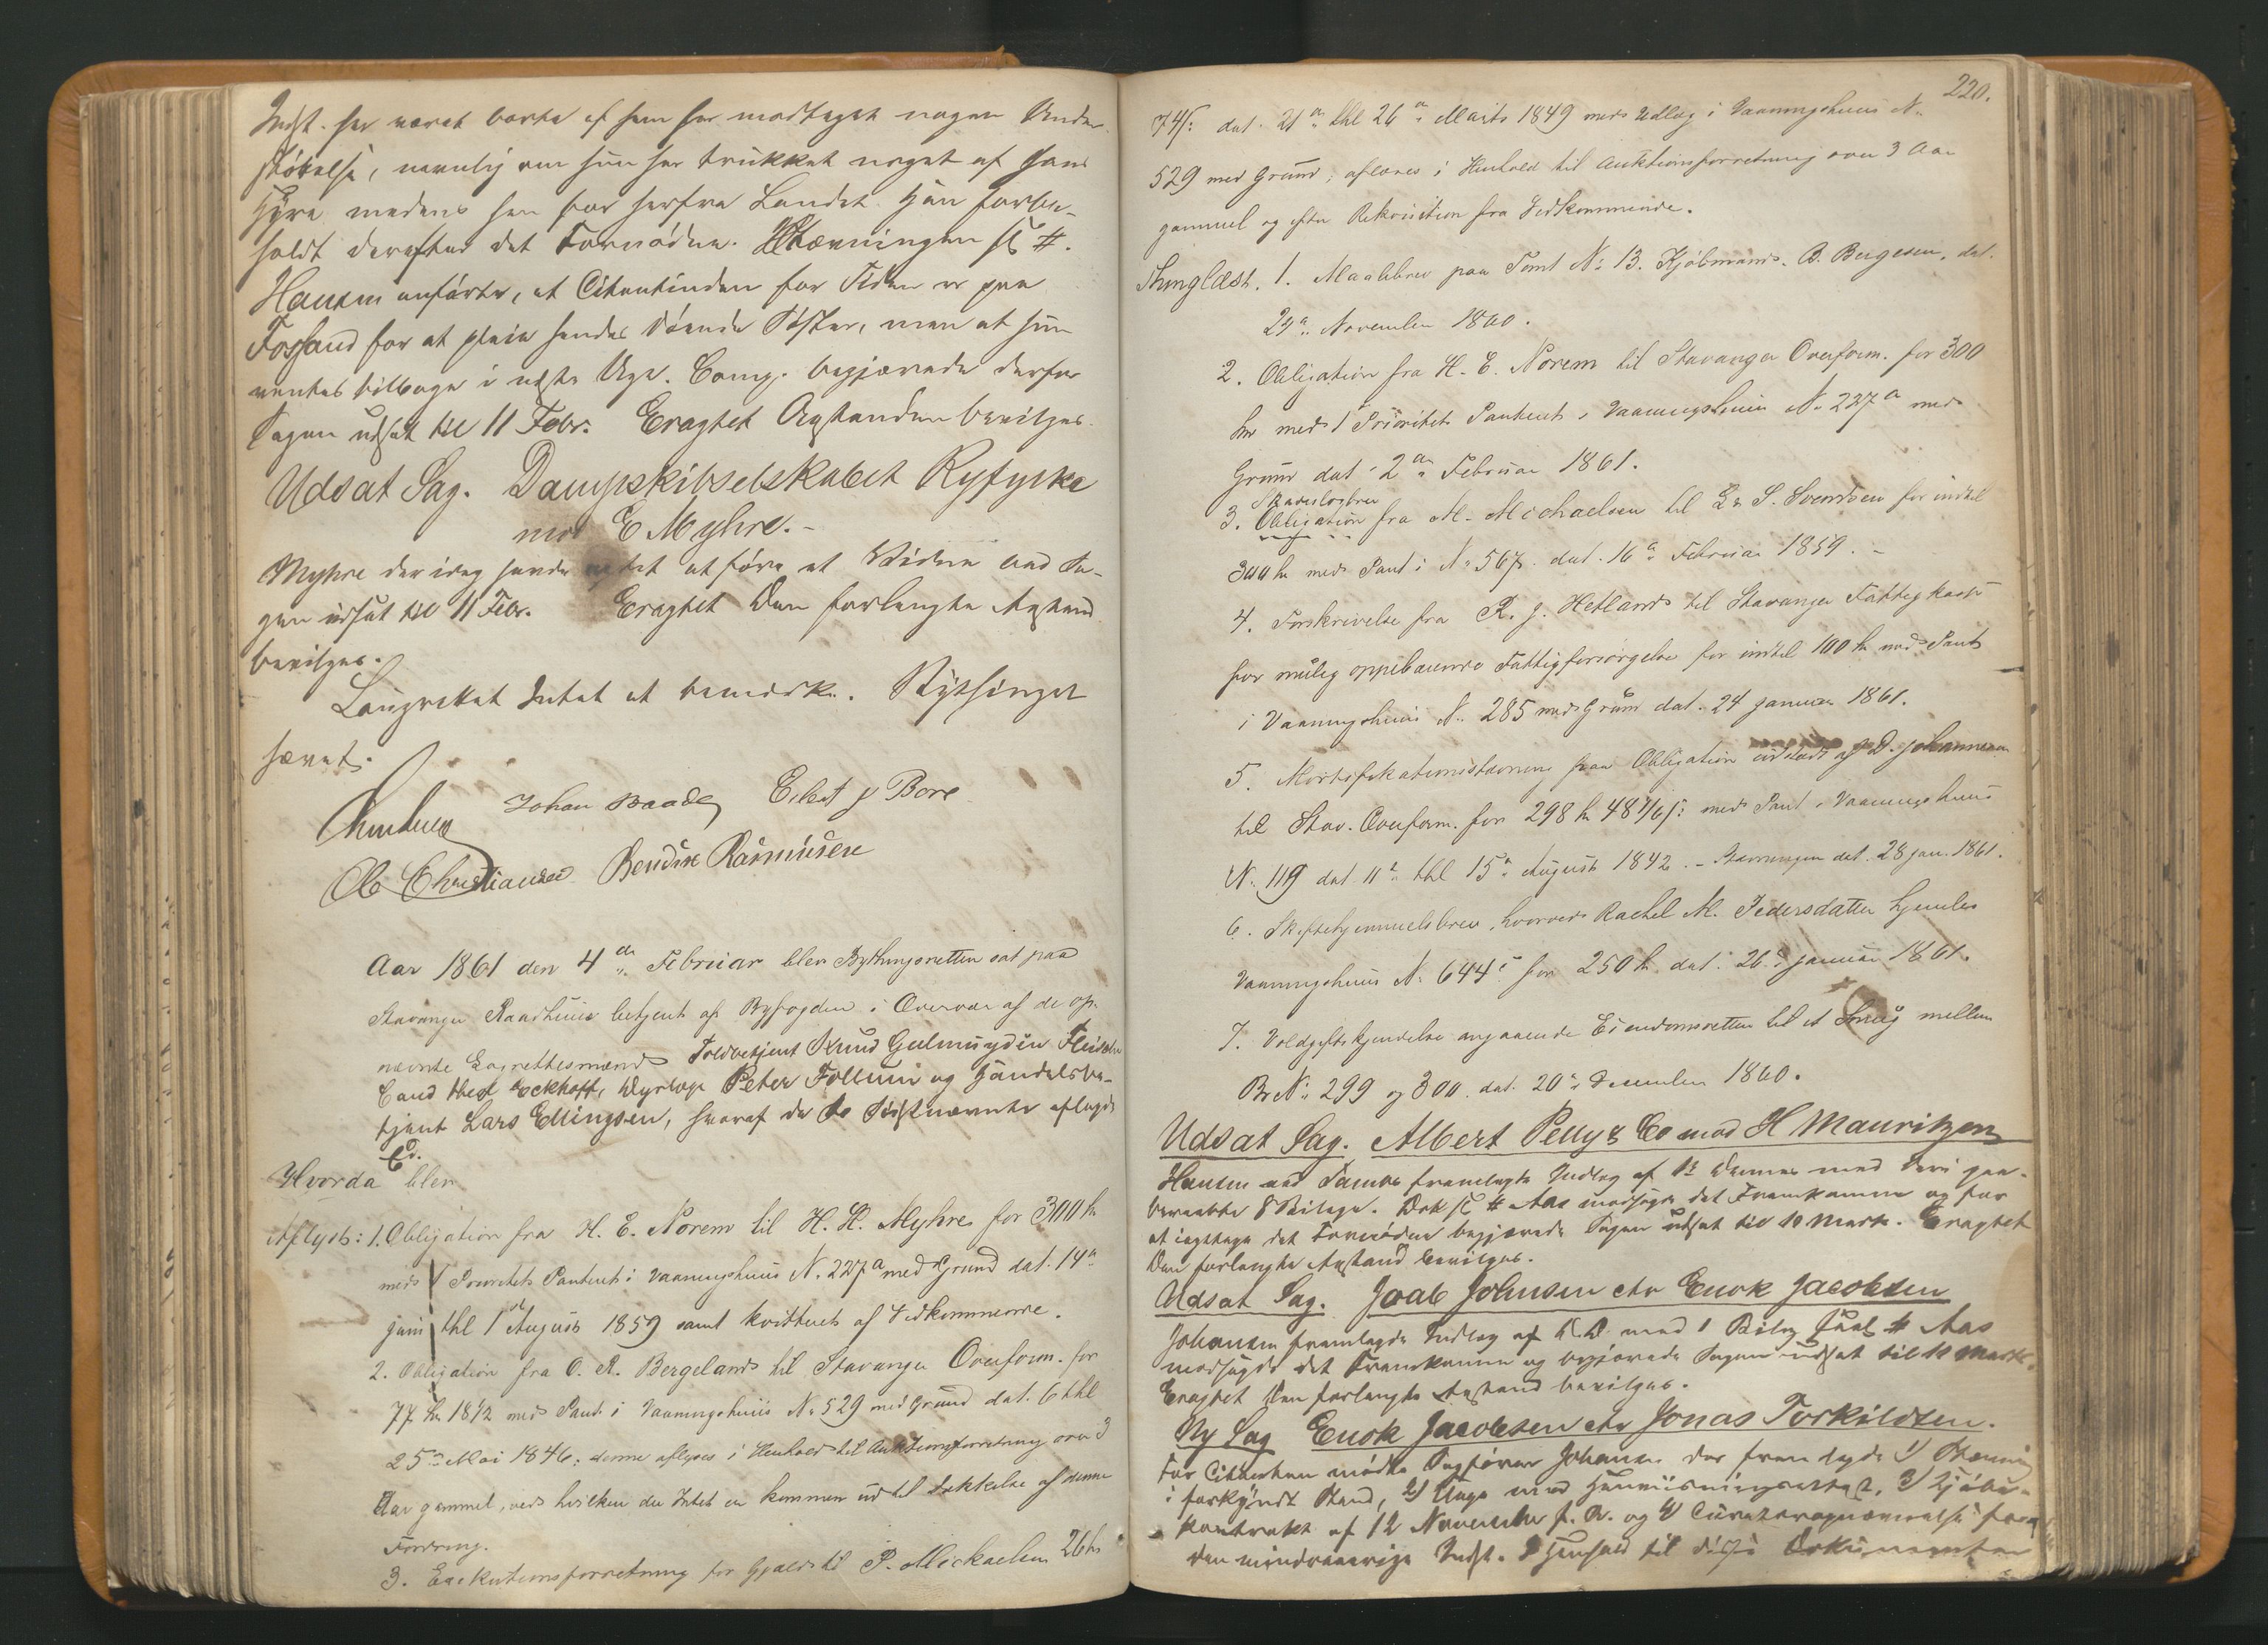 Indst. har været borte eller om han har modtaget nogen Under-
støttelse, navnlig om hun har trukket noget af hans
Hyre medens han var herfra Landet. Han forbe-
holdt derefter det Fornødne. Stævningen fl #.
Hansen anførte, at Citantinden for Tiden er paa
Fossand for at pleie hendes døende Søster, men at hun
ventes tilbage i næste Uge. Comp. begjærede derfor
Sagen udsat til 11 Febr. Eragtet Anstanden bevilges.
Udsat Sag. Dampskibselskabet Ryfylke
mod E Myhre.-
Myhre der idag havde agtet at føre et Vidne bad Sa-
gen udsat til 11 Febr. Eragtet Den forlangte Anstand
bevilges.
Laugrettet Intet at bemærke. Bythinget
hævet.
Johan Baade Eilert J Bore
Ole Christiansen Bendix Rasmussen
Aar 1861 den 4de Februar blev Bythingsretten sat paa
Stavanger Raadhuus betjent af Byfogden i Overvær af de op-
nævnte Lagrettesmænd Toldbetjent Knud Gulmuydin Fleischer
Cand Med Eckhoff, Dyrlæge Peter Follum og Handelsbe-
tjent Lars Ellingsen, hvoraf de to Sidstnævnte aflagde
Ed.
Hvorda blev
Aflyst: 1. Obligation fra H. E. Norem til H. H. Myhre for 300
med 1 Prioritets Panteret i Vaaningshuus N. 227a med Grund dat. 14
juni thl 1 August 1859 samt kvitteret af Vedkommende.
2. Obligation fra O. R. Bergeland til Stavanger Overform. for
77 18½ med Pant i Vaaningshuus N. 529 med Grund dat. 6 thl
25 Mai 1846; denne aflyses i Henhold til Auktionsforretning over 3
Aar gammel, ved hvilken der Intet er kommen ud til Dækkelse af denne
Fordring.
3. Exekutionsforretning for Gjæld til P. Michaelsen 26
220.
74 dat. 21 thl 26 Marts 1849 med Udlæg i Vaaningshuus N.
529 med Grund; aflæses i Henhold til Auktionsforretning over 3 Aar
gammel og efter Rekvisition fra Vedkommende.
Thinglæst. 1. Maalebrev paa Tomt N. 13. Kjøbmand B. Bergesen, dat.
29 November 1860.
2. Obligation fra H. E. Norem til Stavanger Overform. for 300
med 1 Prioritets Panteret i Vaaningshuus N. 227a med
Grund dat. 2 Februar 1861.
Skadesløsbrev
3. Obligation fra M. Michaelsen til L. S. Svendsen for indtil
300 med Pant i N. 567. dat. 16 Februar 1859. -
4. Forskrivelse fra R. J. Hetland til Stavanger Fattigkasse
for mulig oppebaarende Fattigforsørgelse for indtil 100 med Pant
i Vaaningshuus N. 285 med Grund dat. 24 januar 1861.
5. Mortifikationsstævning paa Obligation udstedt af D. Johannesen
til Stav. Overform. for 298 48 med Pant i Vaaningshuus
N. 119 dat 11 thl 15 August 1842. - Stævningen dat. 28 jan. 1861.
6. Skiftehjemmelsbrev, hvorved Rachel M. Pedersdatter hjemles
Vaaningshuus N. 644 for 250 dat. 26 januar 1861.
7. Voldgiftskjendelse angaaende Eiendomsretten til et Smug mellem
Br N. 299 og 300. dat. 20 December 1860.
Udsat Sag. Albert Pelly & Co mod H Mauritzen
Hansen ved Samme fremlagde Indlæg af D. med deri paa-
beraabte 8 Bilage. Dok fl # Aas modsagde det Fremkomne og for
at iagttage det Fornødne begjærede Sagen udsat til 18 Marts. Eragtet
Den forlangte Anstand bevilges.
Udsat Sag. Joab Johnsen ctr Enok Jacobsen
Johansen fremlagde Indlæg af D. D. med 1 Bilag # Aas
modsagde det Fremkomne og begjærede Sagen udsat til 18 Marts.
Eragtet Den forlangte Anstand bevilges.
Ny Sag Enok Jacobsen ctr Jonas Torkildsen.
For Citanten mødte Sagfører Johansen der fremlagde 1) Stævning
i forkyndt Stand, 2) Klage med Henviisningsattest, 3) Kjøbe-
kontrakt af 12 November f. A. og 4) Curatoropnævnelse for
den mindreaarige Indst. I Henhold til disse Dokumenter